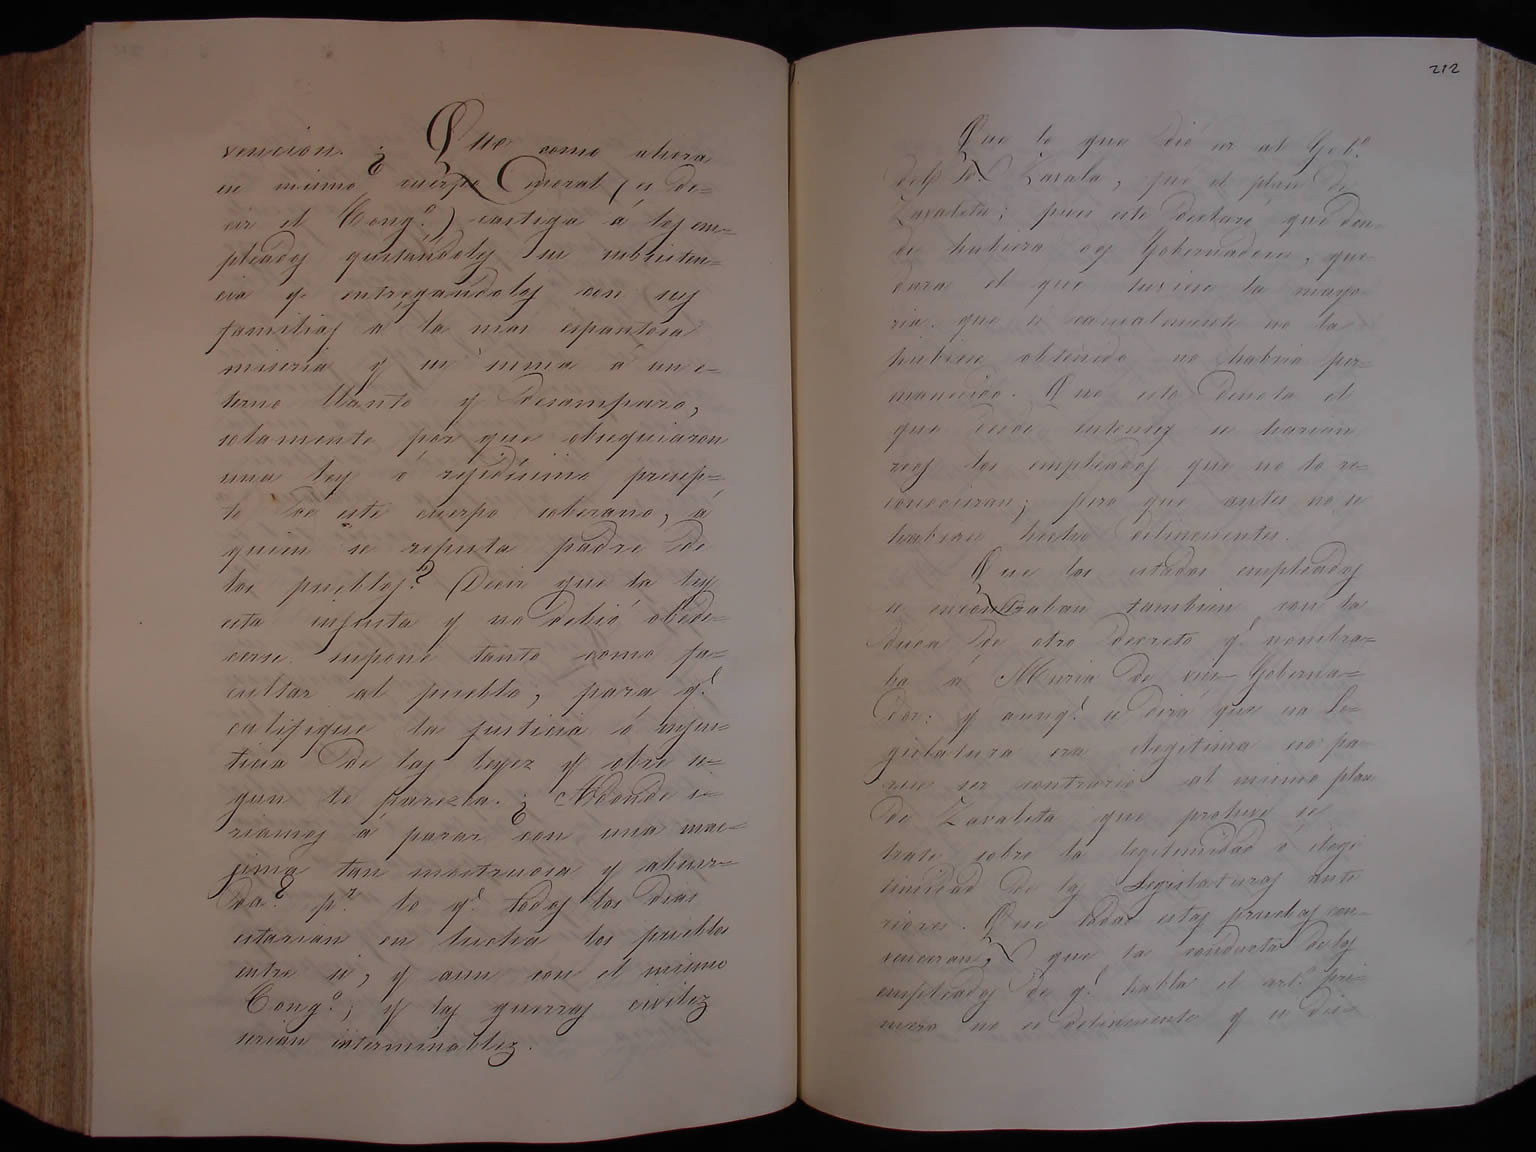 vencion. ¿ Que como ahora
se mismo cuerpo moral (es de=
cir el Cong.º) castiga á los em=
pleados quitandoles su subsisten=
cia y entregandolos con sus
familias á la mas espantosa
miseria y en suma á un e=
terno llanto y desamparo,
solamente por que obsequiaron
una ley ó rejidisimo precep=
to de este cuerpo soberano, á
quien se reputa padre de
los pueblos? Decir que la ley
esta injusta y no debió obede=
cerse supone tanto como fa=
cultar al pueblo, para q.e
califique la justicia ó injus=
ticia de las leyez y obre se=
gun le paresca. ¿ Adonde i=
riamos á parar con una mac=
sima tan mostruosa y absur=
da? p.r lo q.e todos los dias
estarian en lucha los pueblos
entre si, y aun con el mismo
Cong.º; y las guerras civilez
serian interminablez.
212
Que lo que dió ser al Gob.º
del Sr Zavala, fué el plan de
Zavaleta; pues este declaró que don=
de hubiera dos Gobernadores, que=
dara el que tuviese la mayo=
ria que si casualmente no la
hubiese obtenido no habria per=
manecido. Que esto denota el
que desde entonces se harian
reos los empleados que no lo re=
conocieran; pero que antes no se
habian hecho delincuentes.
Que los citados empleados
se encontraban tambien con la
duda de otro decreto q.e nombra=
ba á Muria de vice Goberna=
dor: y aunq.e se dirá que esa Le=
gislatura era ilegitima eso pa=
rece ser contrario al mismo plan
de Zavaleta que prohive se
trate sobre la legitimidad ó ilegi
timidad de las Legislaturas ante
riores. Que todas estas pruebas con=
venceran, que la conducta de los
empleados de q.e habla el art.º pri=
mero no es delincuente y se dis=